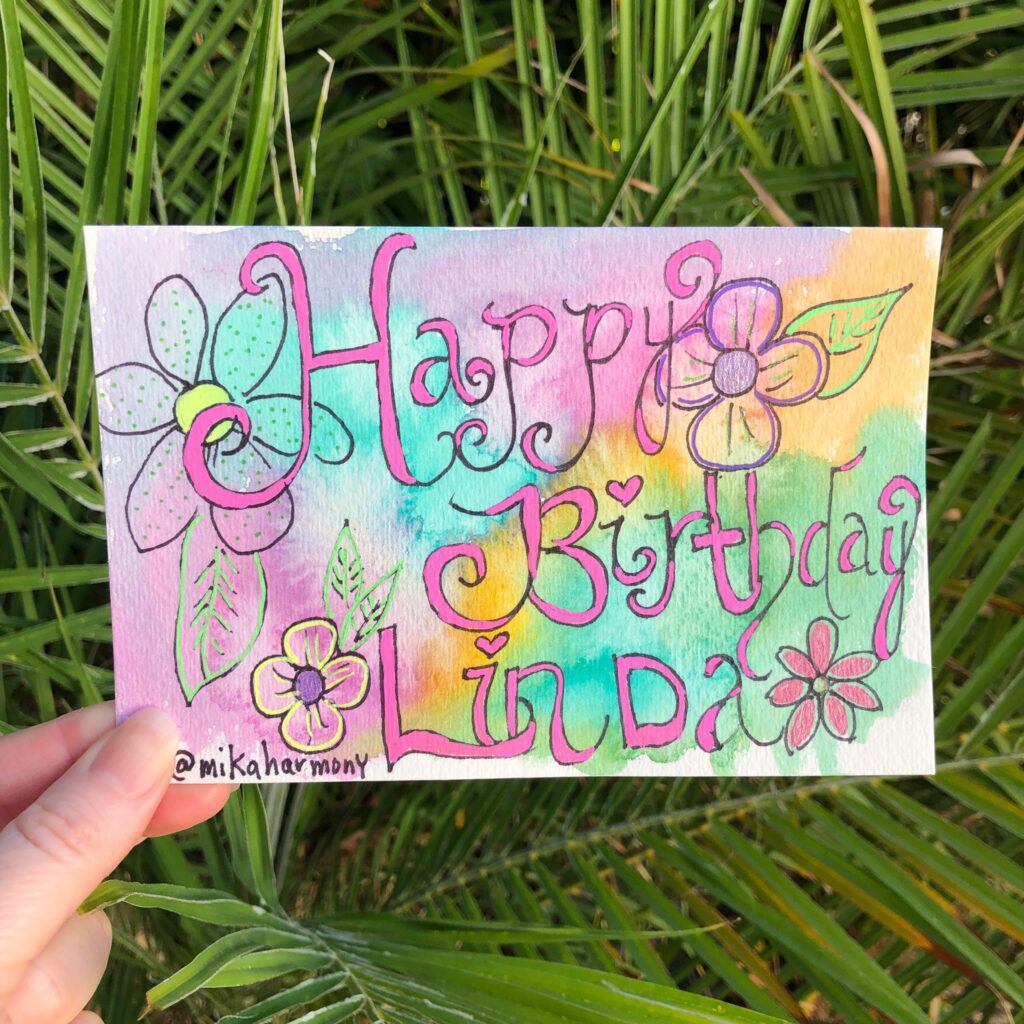 Happy
Birthday
LinDa
@mikaharmony